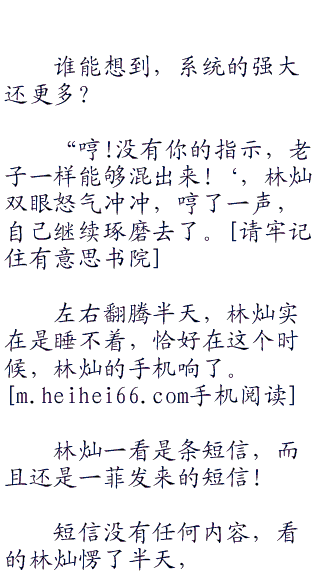 谁能想到，系统的强大
还更多？
“哼!没有你的指示，老
子一样能够混出来！‘，林灿
双眼怒气冲冲，哼了一声，
自己继续琢磨去了。[请牢记
住有意思书院]
左右翻腾半天，林灿实
在是睡不着，恰好在这个时
候，林灿的手机响了。
[m.heihei66.com手机阅读]
林灿一看是条短信，而
且还是一菲发来的短信！
短信没有任何内容，看
的林灿愣了半天，